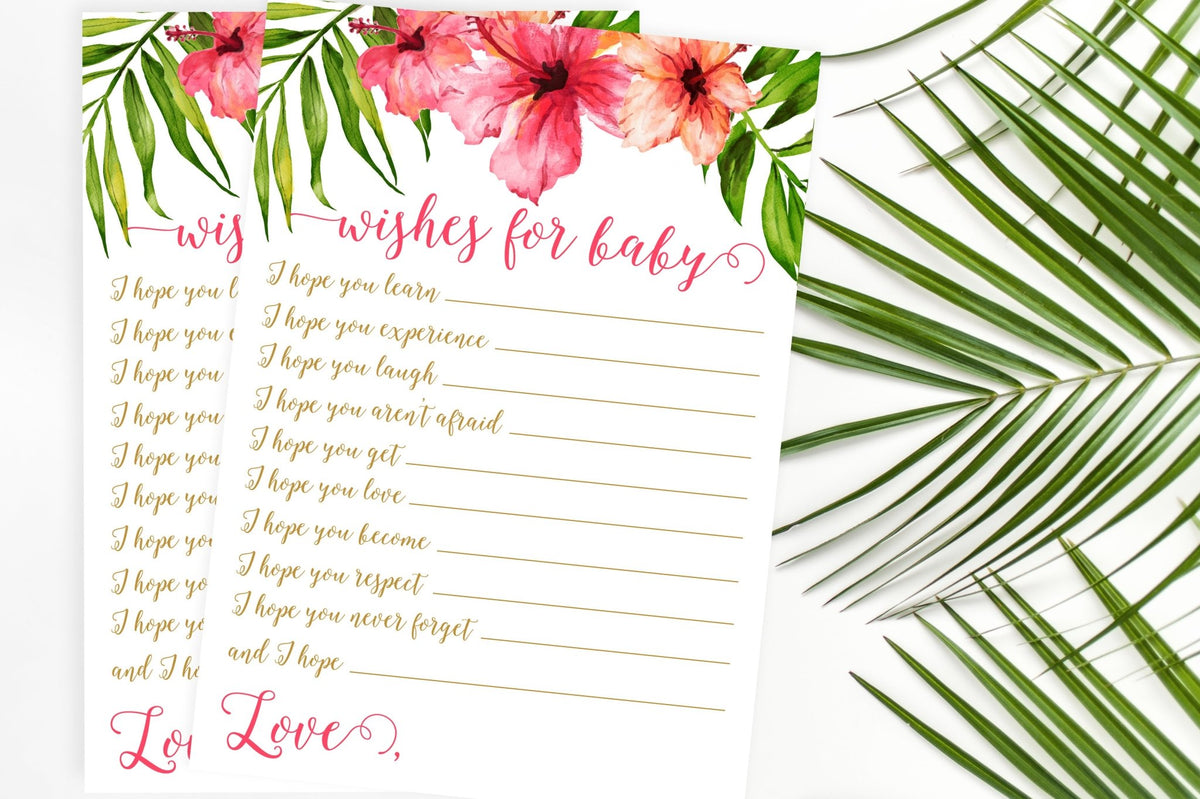 wishes for baby
I hope you learn
I hope you experience
I hope you laugh
I hope you aren't afraid
I hope you get
I hope you love
I hope you become
I hope you respect
I hope you never forget
and I hope
Love,
wis
I hope you l
I hope you e
I hope you
I hope you
I hope you
I hope you
I hope yo
I hope yo
I hope yo
and I ho
Lo